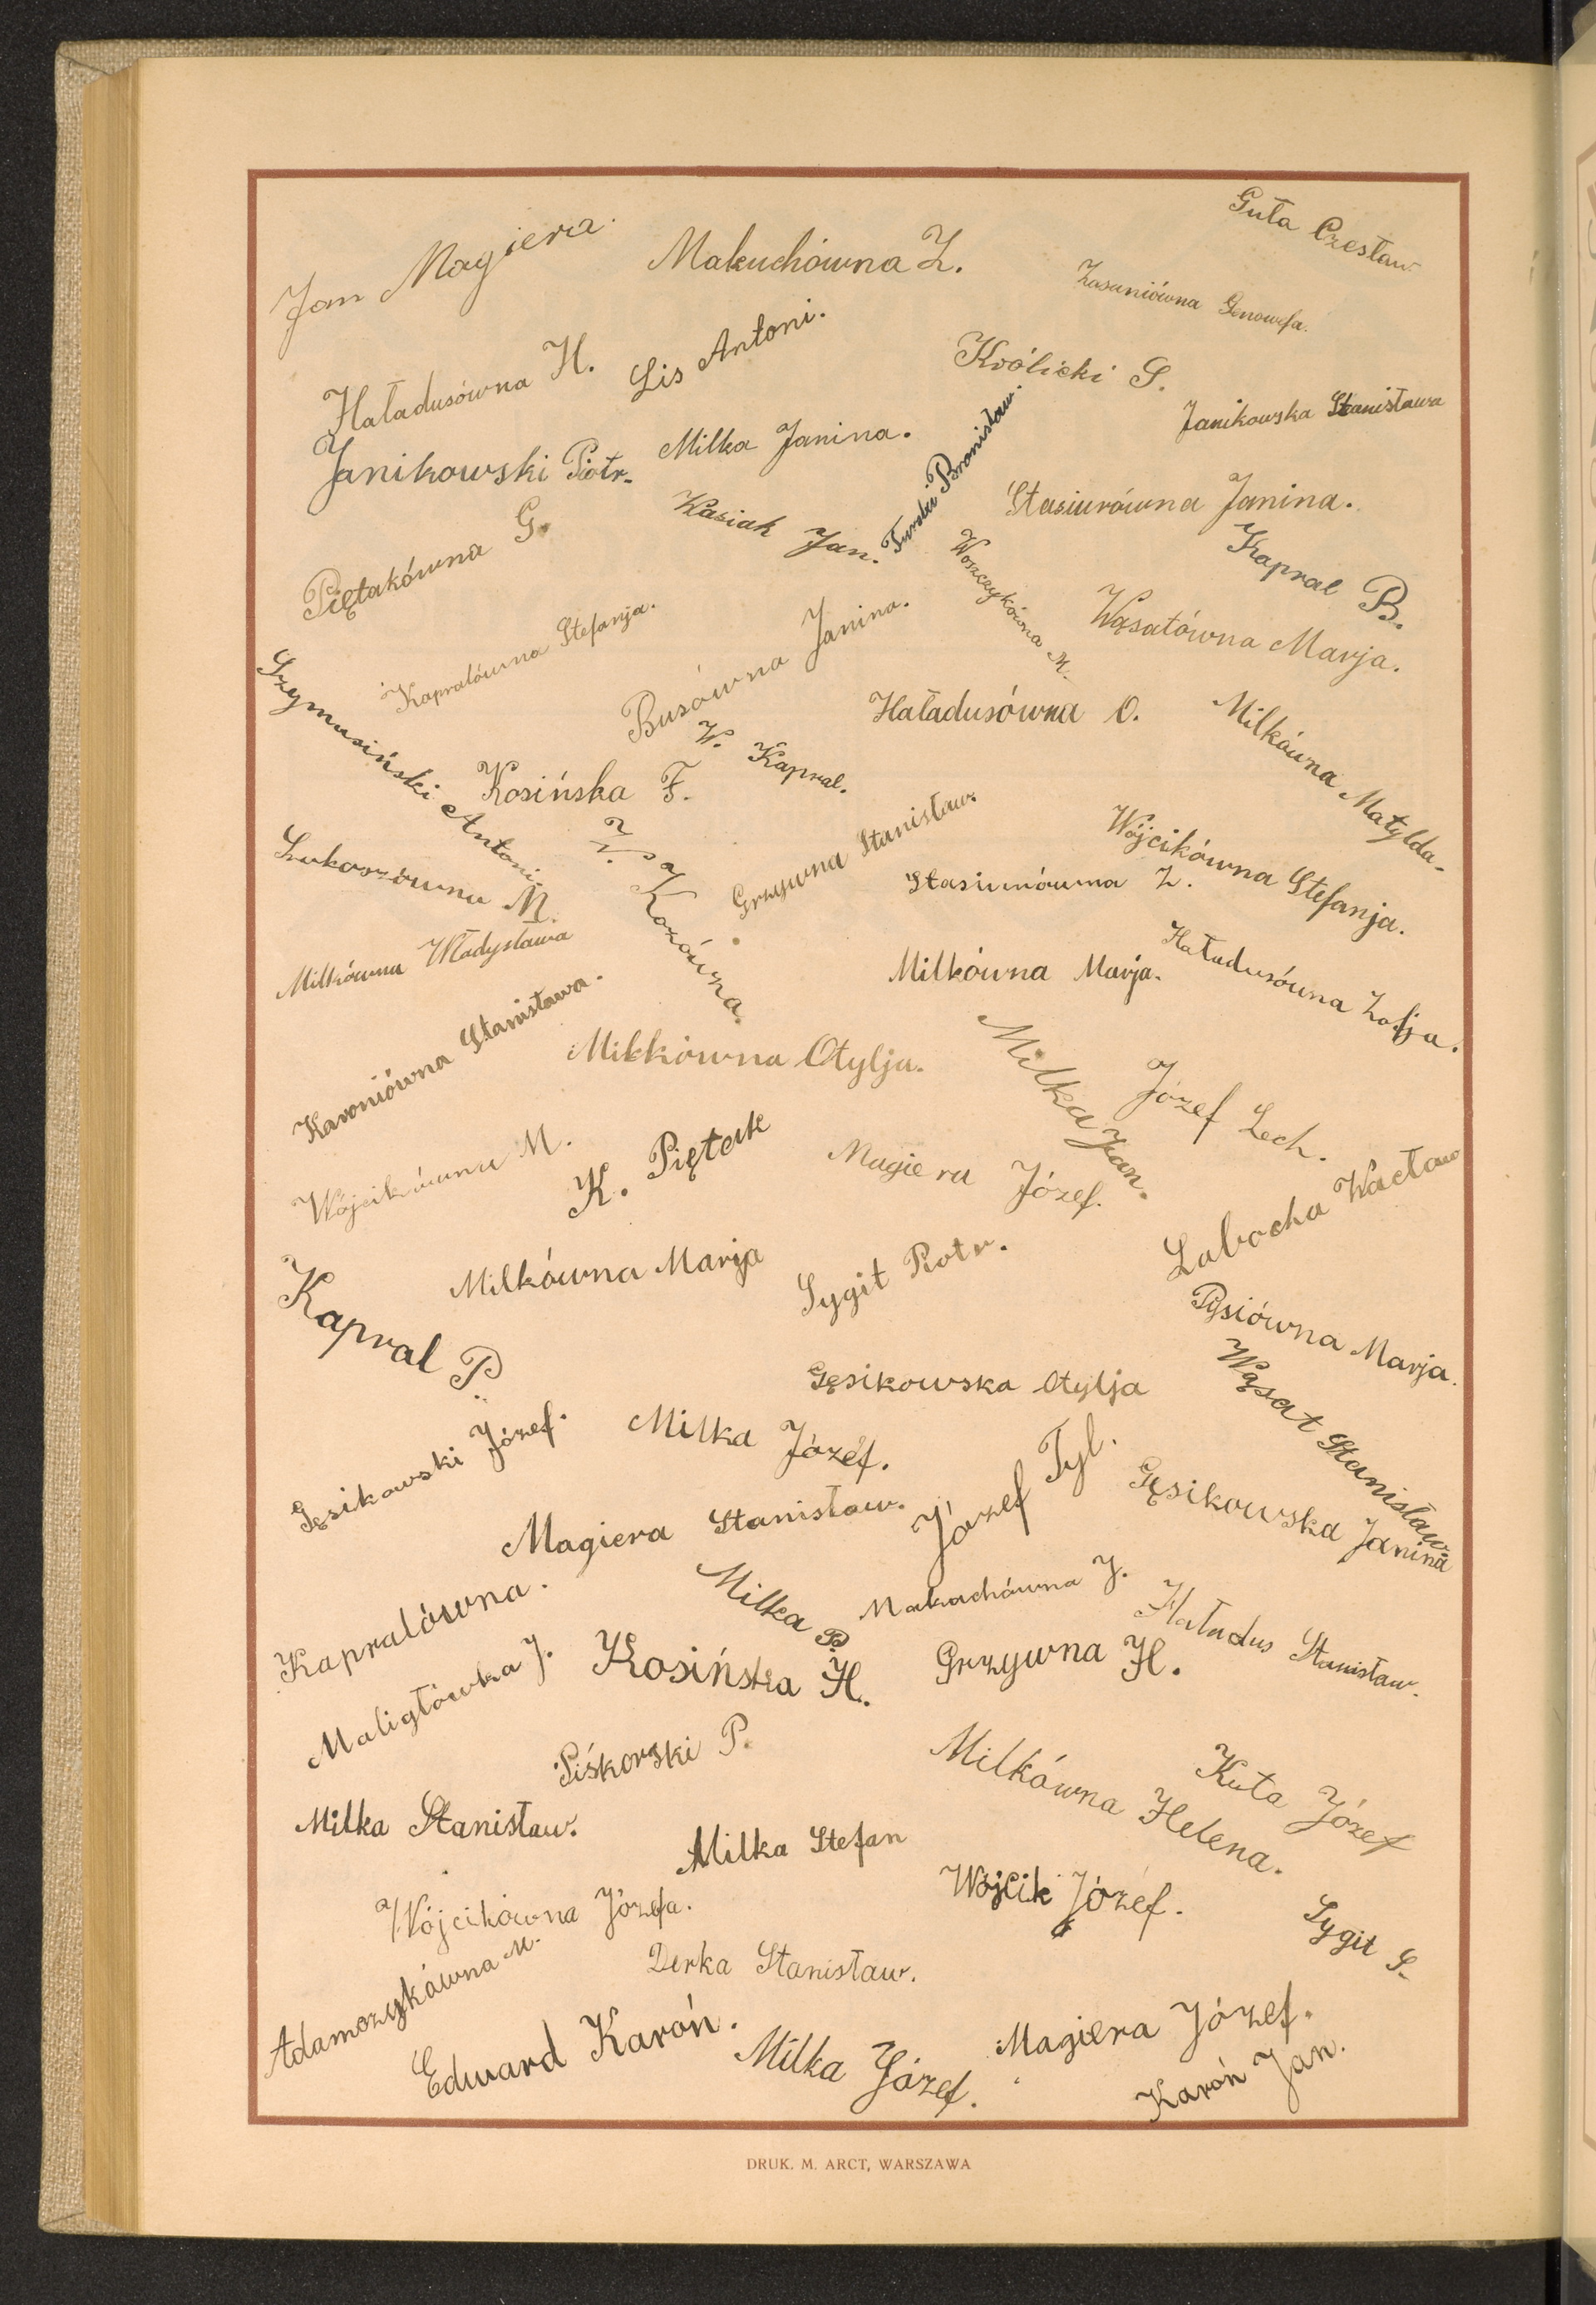 Jan Magiera.
Makuchówna Z.
Guła Czesław
Zasuniówna Genowefa.
Haładusówna H.
Lis Antoni.
Królicki S.
Janikowska Stanisława
Janikowski Piotr.
Milka Janina.
Turski Bronisław.
Kasiak Jan.
Stasiurówna Janina.
Kapral B.
Piętakówna G.
Woszczykówna M.
Wąsatówna Marja.
Kapralówna Stefanja.
Busówna Janina.
Haładusówna O.
Milkówna Matylda.
Szymusiński Antoni.
W. Kapral.
Kosińska F.
Grzywna Stanisław.
Wójcikówna Stefanja.
Łukoszówna M.
W. Kozówna.
Stasiurówna Z.
Milkówna Władysława
Milkówna Marja.
Haładusówna Zofja.
Karoniówna Stanisława.
Milkówna Otylja.
Milka Jan.
Józef Lech.
Wójcikówna M.
K. Piętak
Magiera Józef.
Labocha Wacław
Kapral P.
Milkówna Marja
Sygit Piotr.
Pysiówna Marja.
Gęsikowska Otylja
Wąsat Stanisław.
Gęsikowski Józef.
Milka Józef.
Józef Tyl.
Gęsikowska Janina
Magiera Stanisław.
Kapralówna.
Milka P.
Makachówna J.
Haładus Stanisław.
Maligłówka J.
Kosińska H.
Grzywna H.
Piśkorski P.
Milkówna Helena.
Kuta Józef
Milka Stanisław.
Milka Stefan
Wójcik Józef.
Wójcikówna Józefa.
Sygit S.
Adamczykówna M.
Derka Stanisław.
Edward Karoń.
Milka Józef.
Magiera Józef.
Karoń Jan.
DRUK. M. ARCT, WARSZAWA